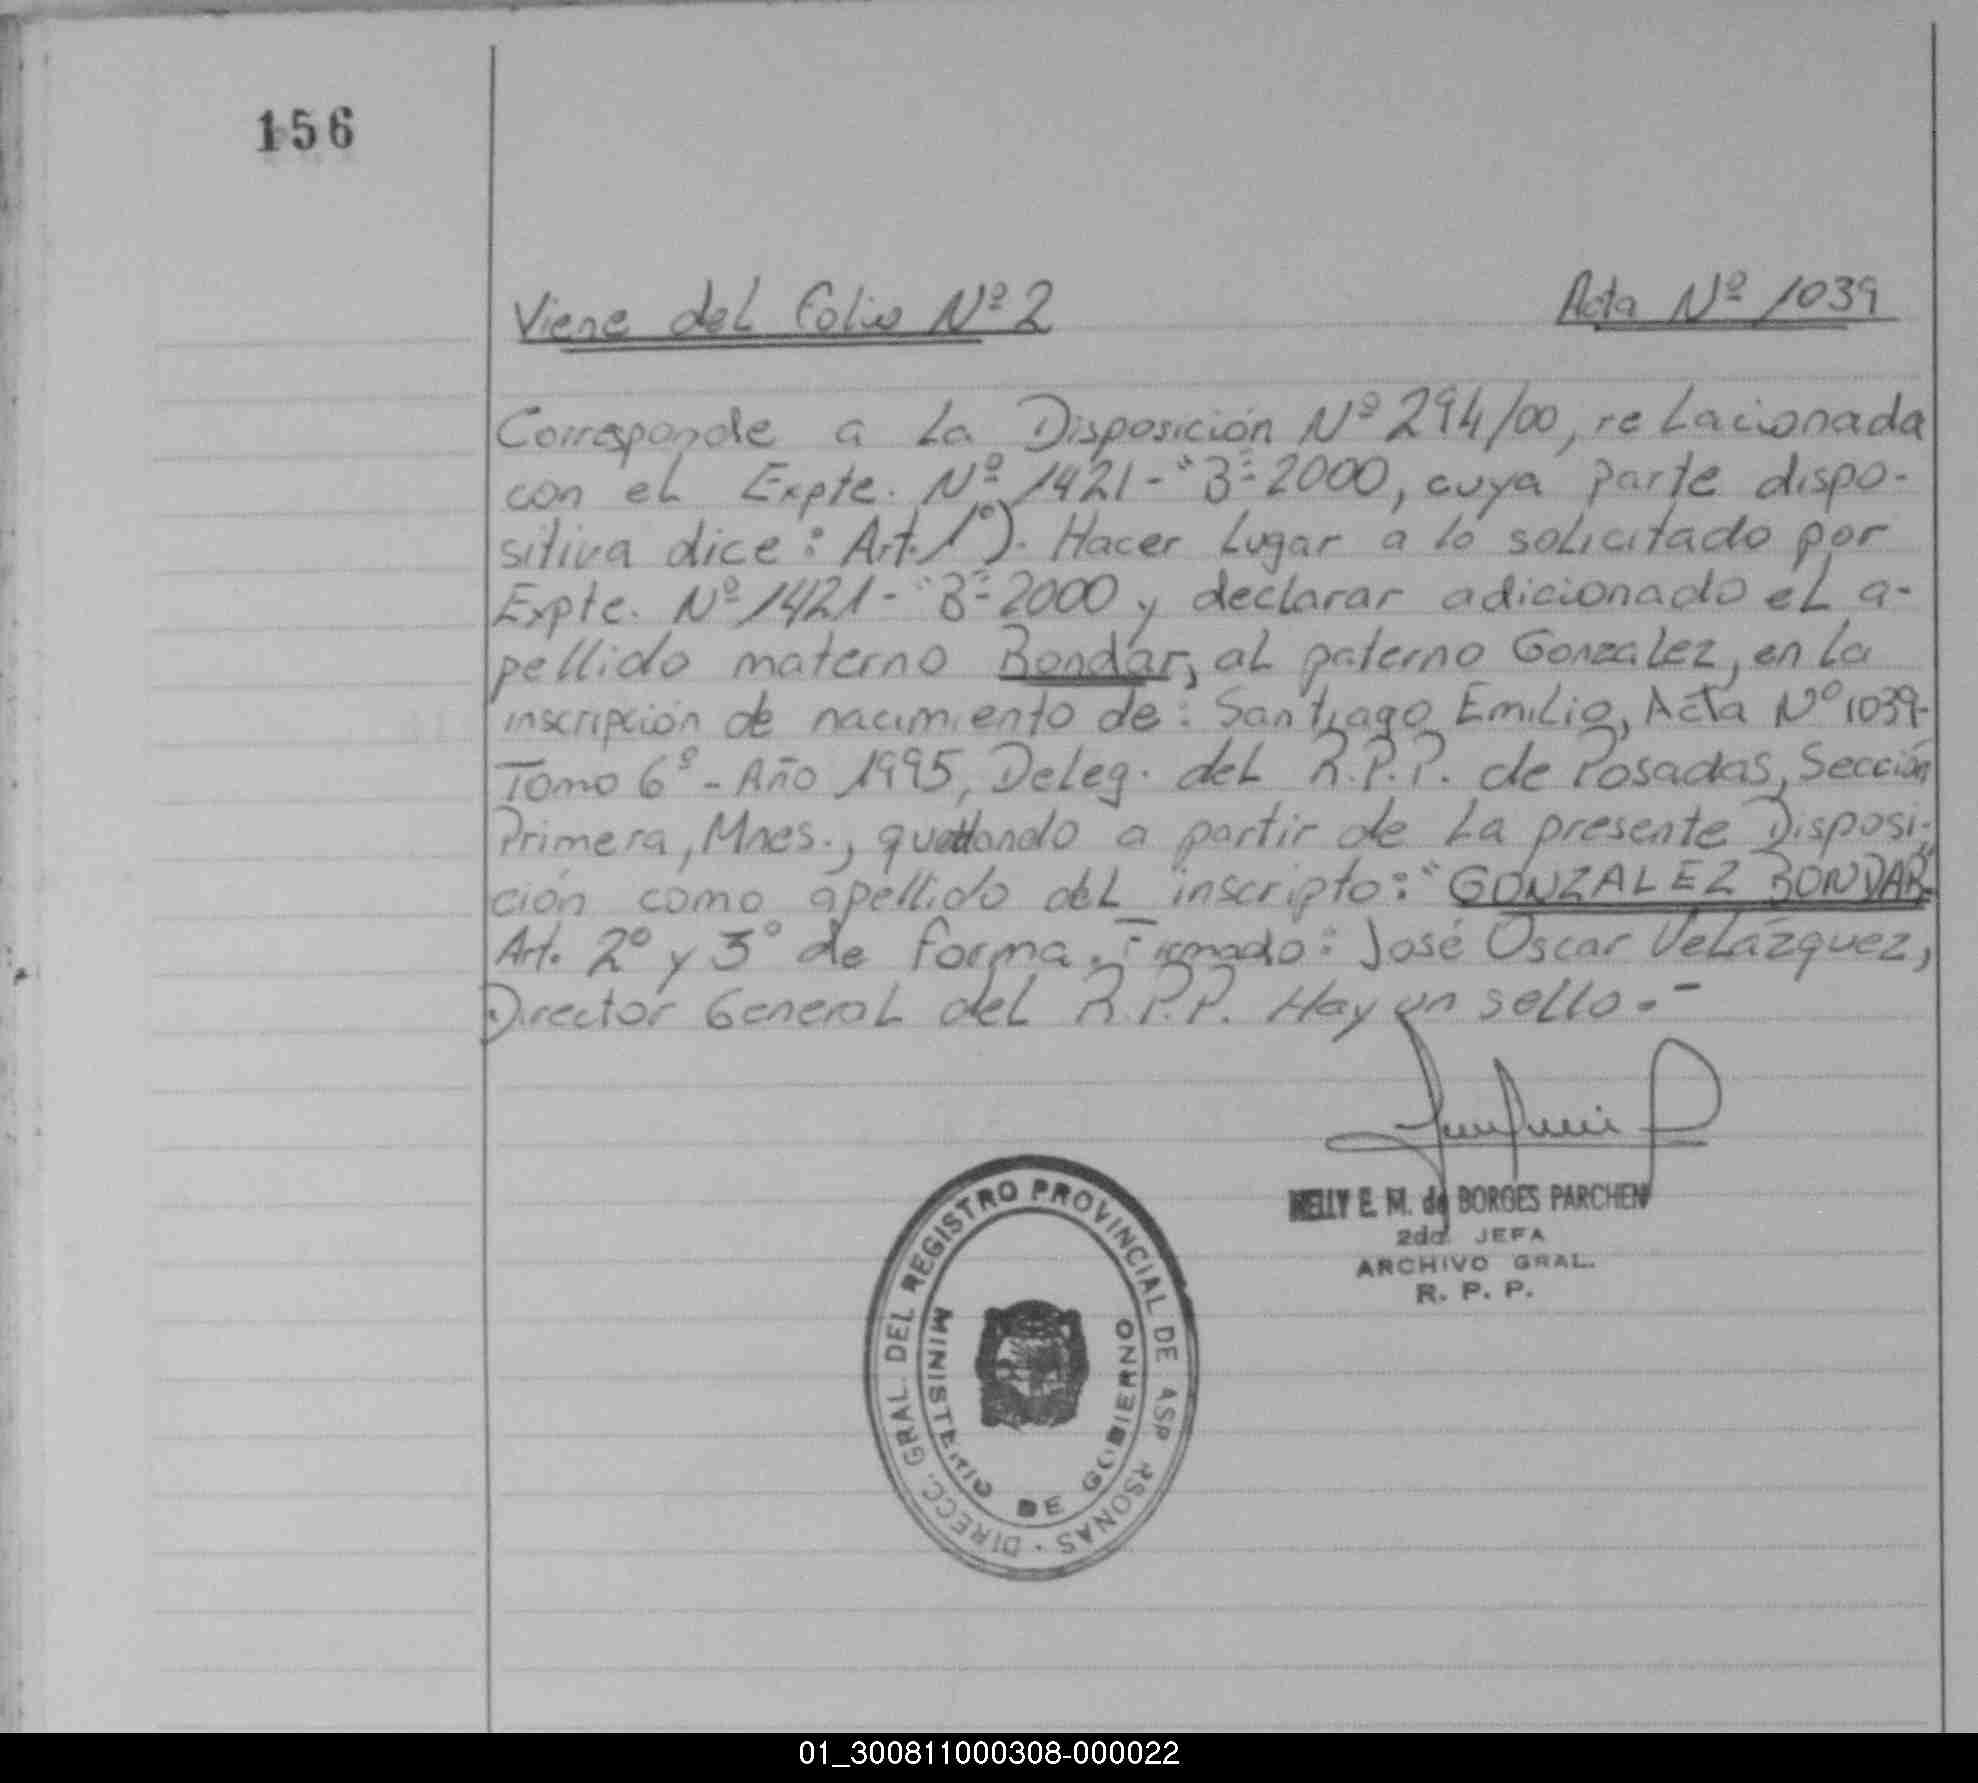 156
Viene del Folio Nº 2
Acta Nº 1039
Corresponde a la Disposición Nº 294/00, relacionada
con el Expte. Nº 1421-"B"-2000, cuya parte dispo-
sitiva dice: Art. 1º). Hacer lugar a lo solicitado por
Expte. Nº 1421-"B"-2000 y declarar adicionado el a-
pellido materno Bondar, al paterno Gonzalez, en la
inscripción de nacimiento de: Santiago Emilio, Acta Nº 1039-
Tomo 6º - Año 1995, Deleg. del R.P.P. de Posadas, Sección
Primera, Mnes., quedando a partir de la presente Disposi-
ción como apellido del inscripto: "GONZALEZ BONDAR".
Art. 2º y 3º de forma. Firmado: José Oscar Velázquez,
Director General del R.P.P. Hay un sello.-
NELLY E. M. de BORGES PARCHEN
2da. JEFA
ARCHIVO GRAL.
R. P. P.
DIRECC. GRAL. DEL REGISTRO PROVINCIAL DE RSONAS
MINISTERIO DE GOBIERNO
01_300811000308-000022